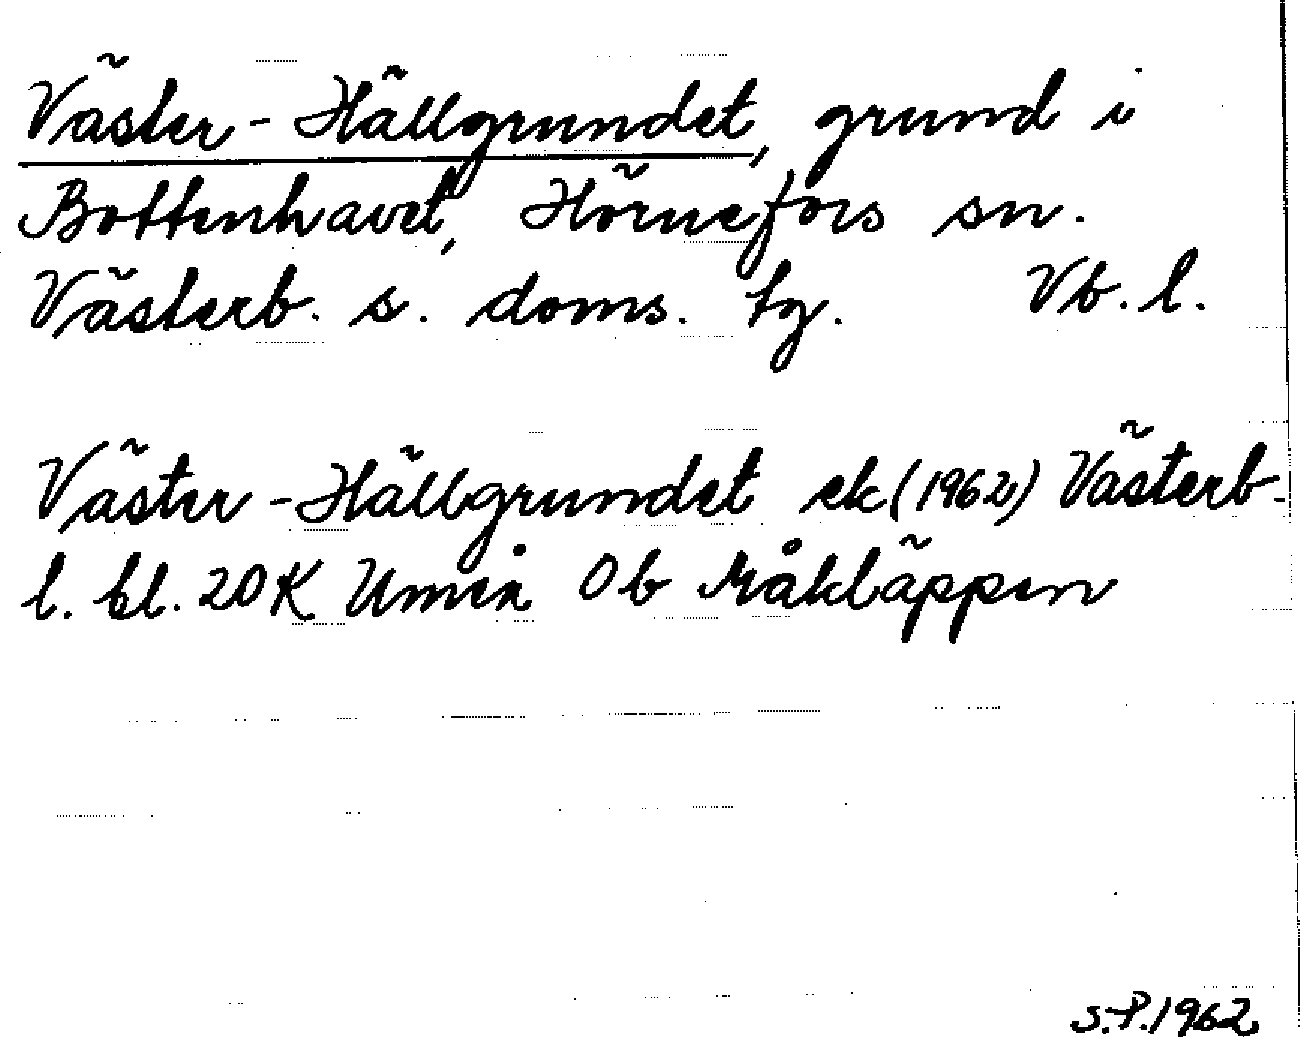 Väster-Hällgrundet, grund i
Bottenhavet, Hörnefors sn.
Västerb. s. doms. tg. Vb. l.
Väster-Hällgrundet ek (1962) Västerb-
l. bl. 20K Umeå 0b Måkläppen
S.P. 1962